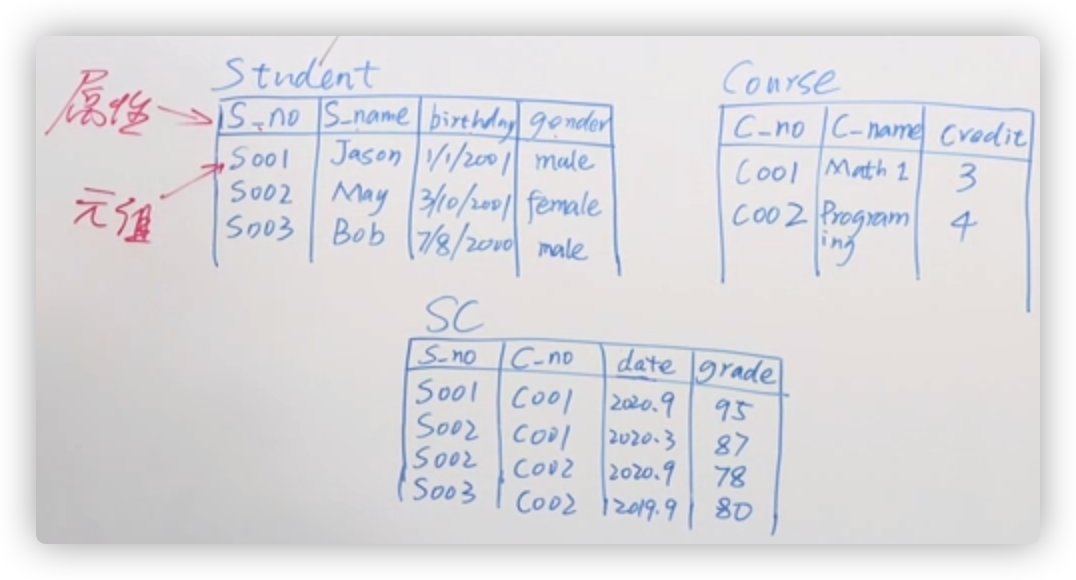 Student
属性
S_no S_name birthday gender
S001 Jason 1/1/2001 male
元组
S002 May 3/10/2001 female
S003 Bob 7/8/2000 male
Course
C_no C_name Credit
C001 Math 1 3
C002 Program 4
ing
SC
S_no C_no date grade
S001 C001 2020.9 95
S002 C001 2020.3 87
S002 C002 2020.9 78
S003 C002 2019.9 80